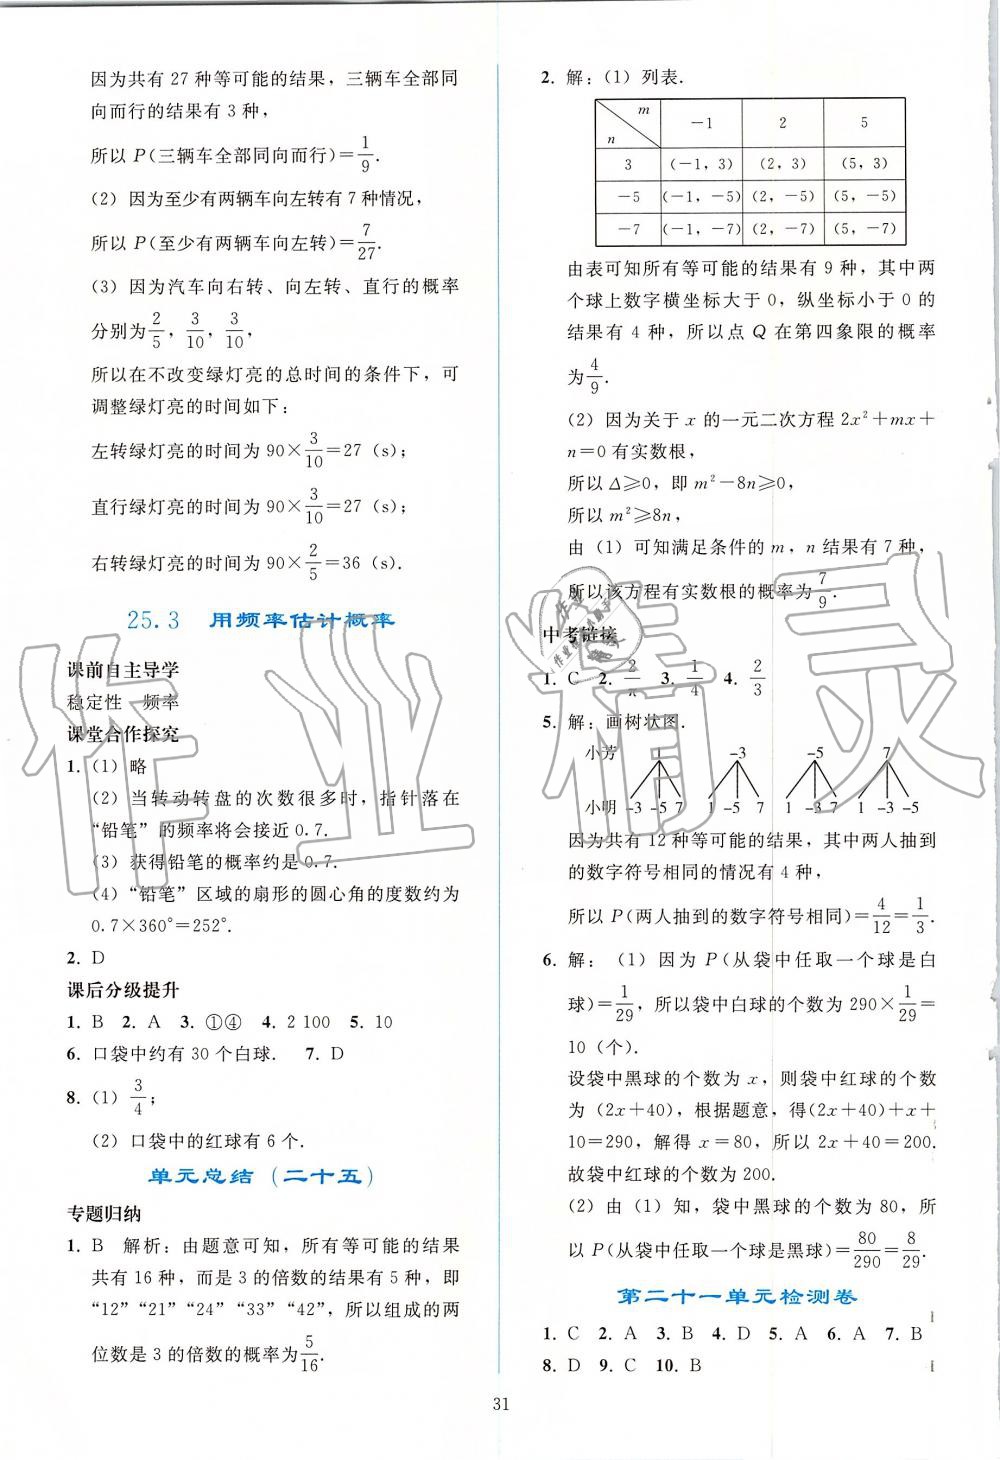 因为共有 27 种等可能的结果，三辆车全部同
向而行的结果有 3 种，
所以 P(三辆车全部同向而行)＝1/9.
(2) 因为至少有两辆车向左转有 7 种情况，
所以 P(至少有两辆车向左转)＝7/27.
(3) 因为汽车向右转、向左转、直行的概率
分别为2/5，3/10，3/10，
所以在不改变绿灯亮的总时间的条件下，可
调整绿灯亮的时间如下：
左转绿灯亮的时间为 90×3/10＝27 (s)；
直行绿灯亮的时间为 90×3/10＝27 (s)；
右转绿灯亮的时间为 90×2/5＝36 (s).
25.3 用频率估计概率
课前自主导学
稳定性 频率
课堂合作探究
1. (1) 略
(2) 当转动转盘的次数很多时，指针落在
“铅笔”的频率将会接近 0.7.
(3) 获得铅笔的概率约是 0.7.
(4)“铅笔”区域的扇形的圆心角的度数约为
0.7×360°＝252°.
2. D
课后分级提升
1. B 2. A 3. ①④ 4. 2 100 5. 10
6. 口袋中约有 30 个白球. 7. D
8. (1) 3/4；
(2) 口袋中的红球有 6 个.
单元总结（二十五）
专题归纳
1. B 解析：由题意可知，所有等可能的结果
共有 16 种，而是 3 的倍数的结果有 5 种，即
“12”“21”“24”“33”“42”，所以组成的两
位数是 3 的倍数的概率为5/16.
2. 解：(1) 列表.
m
n
－1 2 5
3 (－1，3) (2，3) (5，3)
－5 (－1，－5) (2，－5) (5，－5)
－7 (－1，－7) (2，－7) (5，－7)
由表可知所有等可能的结果有 9 种，其中两
个球上数字横坐标大于 0，纵坐标小于 0 的
结果有 4 种，所以点 Q 在第四象限的概率
为4/9.
(2) 因为关于 x 的一元二次方程 2x²＋mx＋
n＝0 有实数根，
所以 Δ≥0，即 m²－8n≥0，
所以 m²≥8n，
由 (1) 可知满足条件的 m，n 结果有 7 种，
所以该方程有实数根的概率为7/9.
中考链接
1. C 2. 2/π 3. 1/4 4. 2/3
5. 解：画树状图.
小芳 1 －3 －5 7
小明 －3 －5 7 1 －5 7 1 －3 7 1 －3 －5
因为共有 12 种等可能的结果，其中两人抽到
的数字符号相同的情况有 4 种，
所以 P(两人抽到的数字符号相同)＝4/12＝1/3.
6. 解：(1) 因为 P(从袋中任取一个球是白
球)＝1/29，所以袋中白球的个数为 290×1/29＝
10（个）.
设袋中黑球的个数为 x，则袋中红球的个数
为 (2x＋40)，根据题意，得(2x＋40)＋x＋
10＝290，解得 x＝80，所以 2x＋40＝200.
故袋中红球的个数为 200.
(2) 由 (1) 知，袋中黑球的个数为 80，所
以 P(从袋中任取一个球是黑球)＝80/290＝8/29.
第二十一单元检测卷
1. C 2. A 3. B 4. D 5. A 6. A 7. B
8. D 9. C 10. B
31
作业精灵